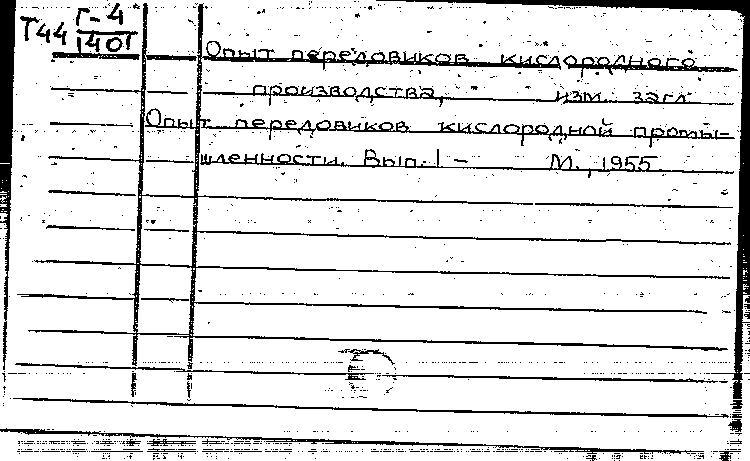 Т44 Г-4
1401
Опыт передовиков кислородного
производства, изм. загл.
Опыт передовиков кислородной промы-
шленности. Вып. 1 – М., 1955